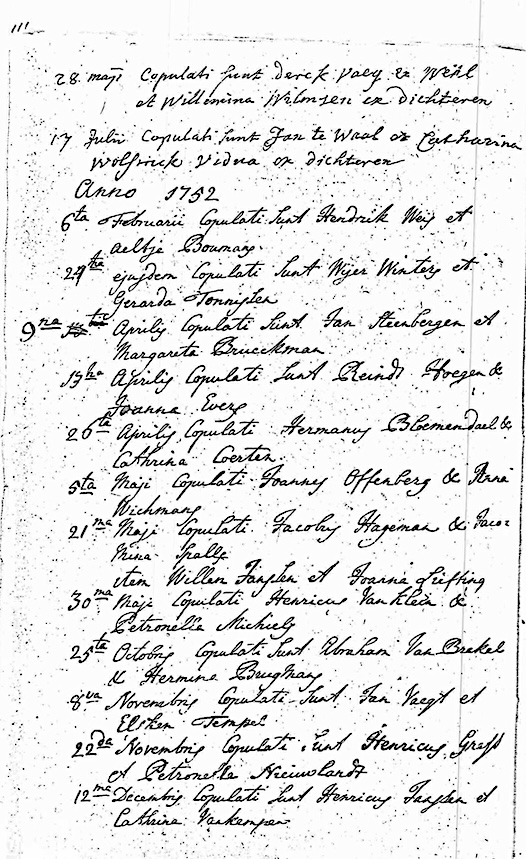 111
28 maji Copulati sunt derck Vaeg ex Wehl
et Willemina Wilmsen ex dichteren
17 Julii Copulati sunt Jan te Waal ex Catharina
Wolfrick Vidua ex dichteren
Anno 1752
6ta Februarii Copulati sunt Hendrik Weis et
Aeltje Boumans
24ta ejusdem Copulati sunt Wijer Winters et
Gerarda Tonnissen
9na Aprilis Copulati sunt Jan Steenbergen et
Margareta Brueckman
13ha Aprilis Copulati sunt Reindt Hoegen &
Joanna Evers
26ta Aprilis Copulati Hermanus Bloemendael &
Cathrina Coerten
5ta Maji Copulati Joannes Offenberg & Anna
Wichmans
21ma Maji Copulati Jacobus Hageman & Jaco=
mina Spalls
item Willem Janssen et Joanna Liefting
30ma Maji Copulati Henricus Van Klein &
Petronella Michiels
25ta Octobris Copulati sunt Abraham Van Brakel
& Hermina Brugmans
8va Novembris Copulati sunt Jan Vaegt et
Elsken Tempel
22da Novembris Copulati sunt Henricus Grass
et Petronella Nieuwlandt
12ma Decembris Copulati sunt Henricus Janssen et
Cathrina Vankempen